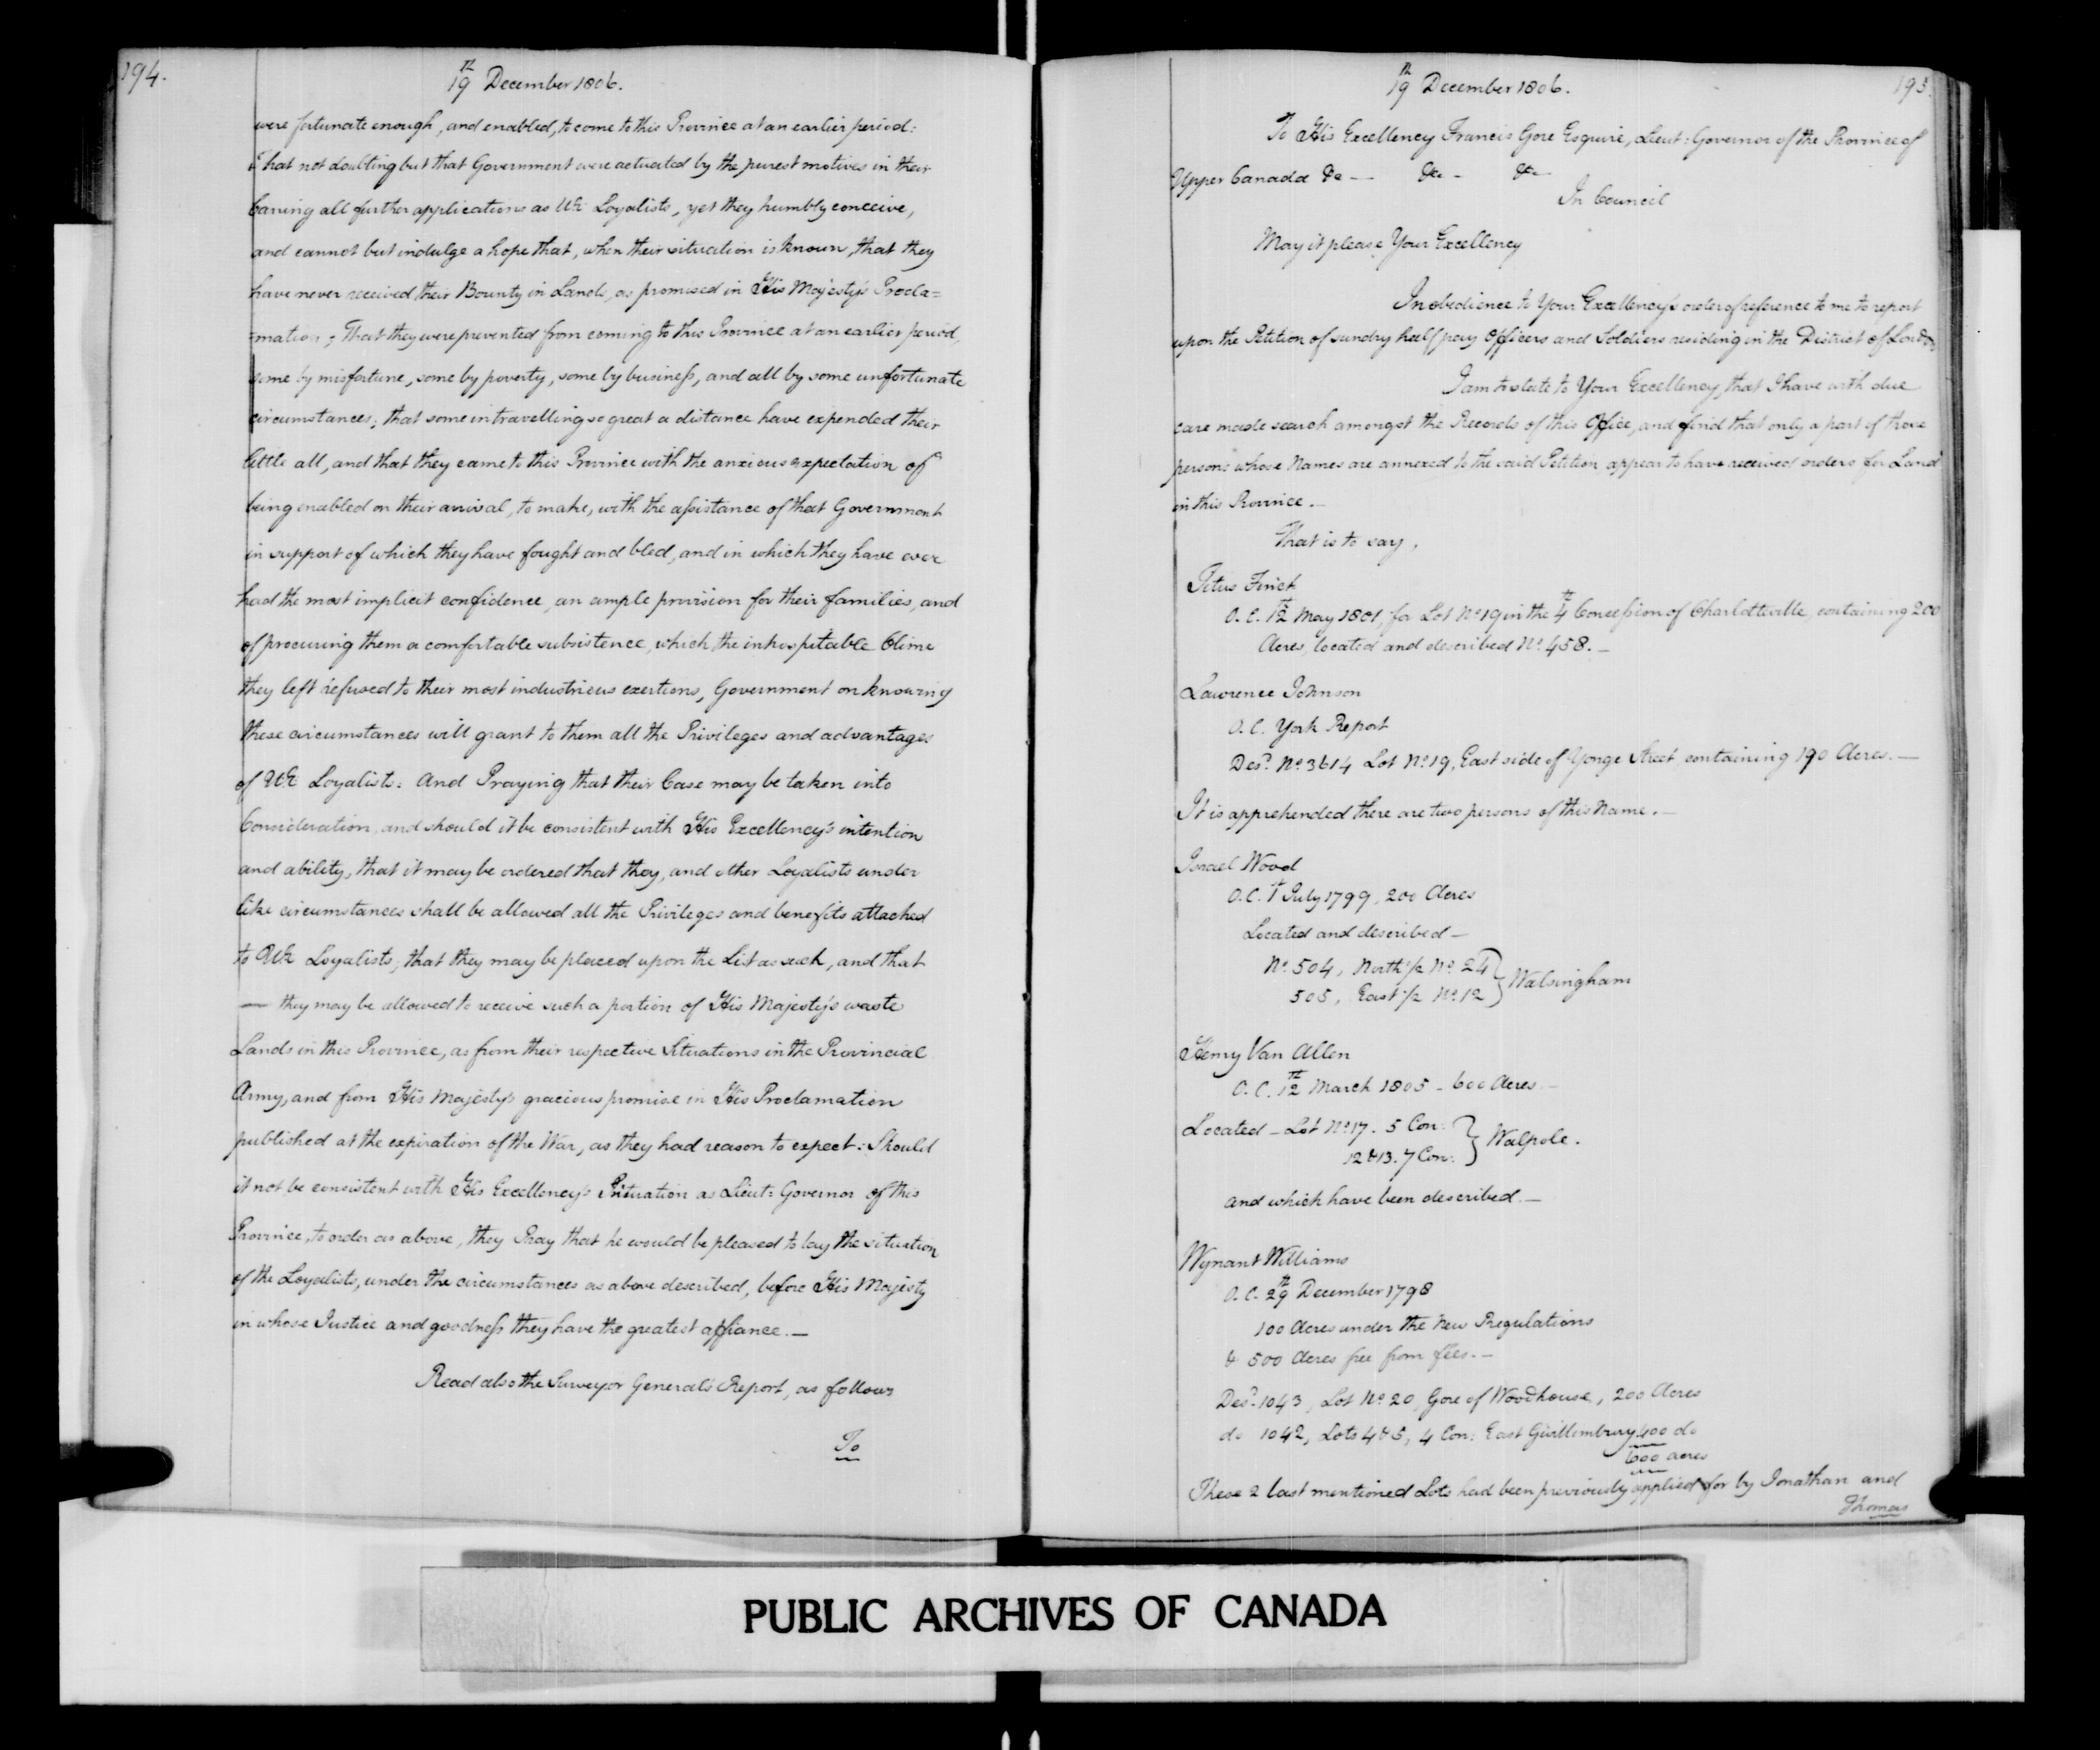 194.
19th December 1806.
were fortunate enough, and enabled, to come to this Province at an earlier period:
That not doubting but that Government were actuated by the purest motives in their
barring all further applications as UE Loyalists, yet they humbly conceive,
and cannot but indulge a hope that, when their situation is known, that they
have never received their Bounty in Lands, as promised in His Majesty's Procla=
=mation; That they were prevented from coming to this Province at an earlier period,
some by misfortune, some by poverty, some by business, and all by some unfortunate
circumstances; that some in travelling so great a distance have expended their
little all, and that they came to this Province with the anxious expectation of
being enabled on their arrival, to make, with the assistance of that Government
in support of which they have fought and bled, and in which they have ever
had the most implicit confidence, an ample provision for their families, and
of procuring them a comfortable subsistence, which the inhospitable Clime
they left refused to their most industrious exertions, Government on knowing
these circumstances will grant to them all the Privileges and advantages
of UE Loyalists: And Praying that their Case may be taken into
Consideration, and should it be consistent with His Excellency's intention
and ability, that it may be ordered that they, and other Loyalists under
like circumstances shall be allowed all the Privileges and benefits attached
to UE Loyalists; that they may be placed upon the List as such, and that
— they may be allowed to receive such a portion of His Majesty's waste
Lands in this Province, as from their respective Situations in the Provincial
Army, and from His Majesty's gracious promise in His Proclamation
published at the expiration of the War, as they had reason to expect: Should
it not be consistent with His Excellency's Situation as Lieut: Governor of this
Province, to order as above, they Pray that he would be pleased to lay the situation
of the Loyalists, under the circumstances as above described, before His Majesty
in whose Justice and goodness they have the greatest affiance.—
Read also the Surveyor General's Report, as follows
To
19th December 1806.
195.
To His Excellency Francis Gore Esquire, Lieut: Governor of the Province of
Upper Canada &c — &c - &c —
In Council
May it please Your Excellency
In obedience to Your Excellency's order of reference to me to report
upon the Petition of sundry half pay Officers and Soldiers residing in the District of London
I am to state to Your Excellency, that I have with due
care made search amongst the Records of this Office, and find that only a part of those
persons whose Names are annexed to the said Petition appear to have received orders for Land
in this Province.—
That is to say,
Titus Finch
O.C. 12th May 1801, for Lot No 19 in the 4th Concession of Charlotteville, containing 200
Acres, located and described No. 458.—
Lawrence Johnson
O.C. York Report
Desd. No. 3614 Lot No. 19, East side of Yonge Street containing 190 Acres.—
It is apprehended there are two persons of this Name.—
Israel Wood
O.C. 1t July 1799, 200 Acres
Located and described—
No. 504, North 1/2 No. 24 } Walsingham
505, East 1/2 No. 12
Henry Van Allen
O.C. 12th March 1805 - 600 Acres —
Located — Lot No. 17. 5 Con: } Walpole.
12 & 13. 7 Con:
and which have been described.—
Wynant Williams
O.C. 29th December 1798
100 Acres under the New Regulations
& 500 Acres free from fees.—
Desd. 1043, Lot No. 20, Gore of Woodhouse, 200 Acres
do 1042, Lots 4 & 5, 4 Con: East Gwillimbury 400 do
600 acres
These 2 last mentioned Lots had been previously applied for by Jonathan and
Thomas
PUBLIC ARCHIVES OF CANADA